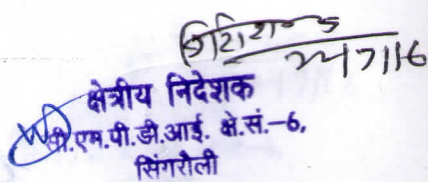 24/7/16
क्षेत्रीय निदेशक
सी.एम.पी.डी.आई. क्षे.सं.–6,
सिंगरौली